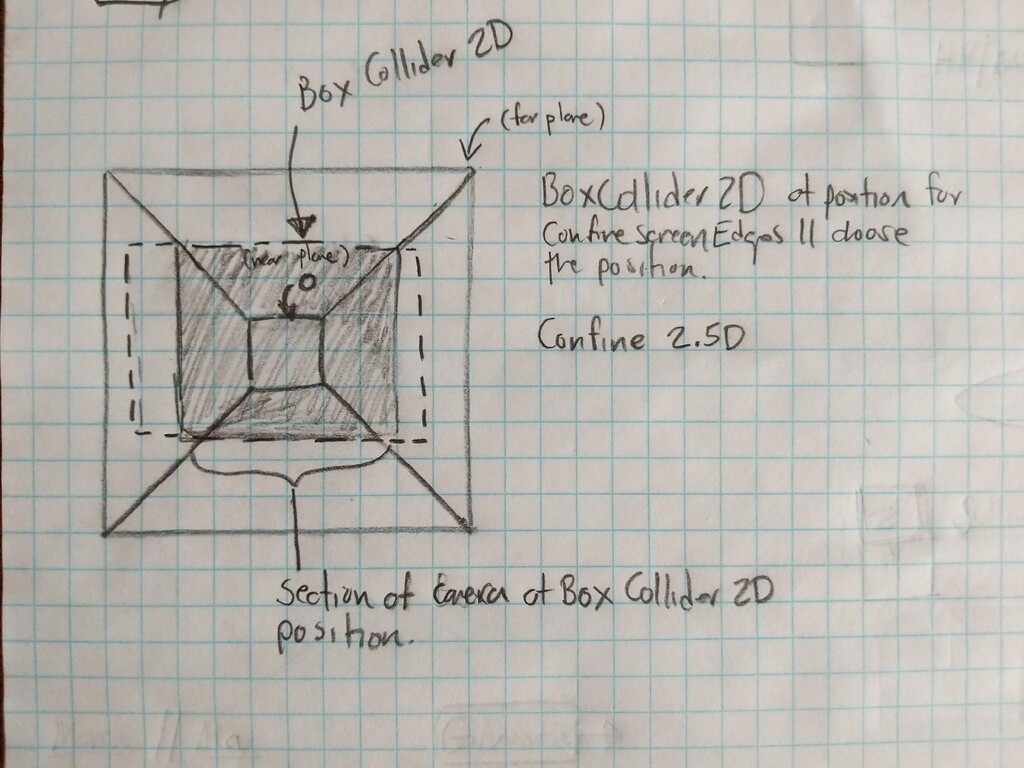 Box Collider 2D
(far plane)
BoxCollider 2D at position for
Confine screen Edges || choose
the position.
(near plane)
Confine 2.5D
Section of Camera at Box Collider 2D
position.